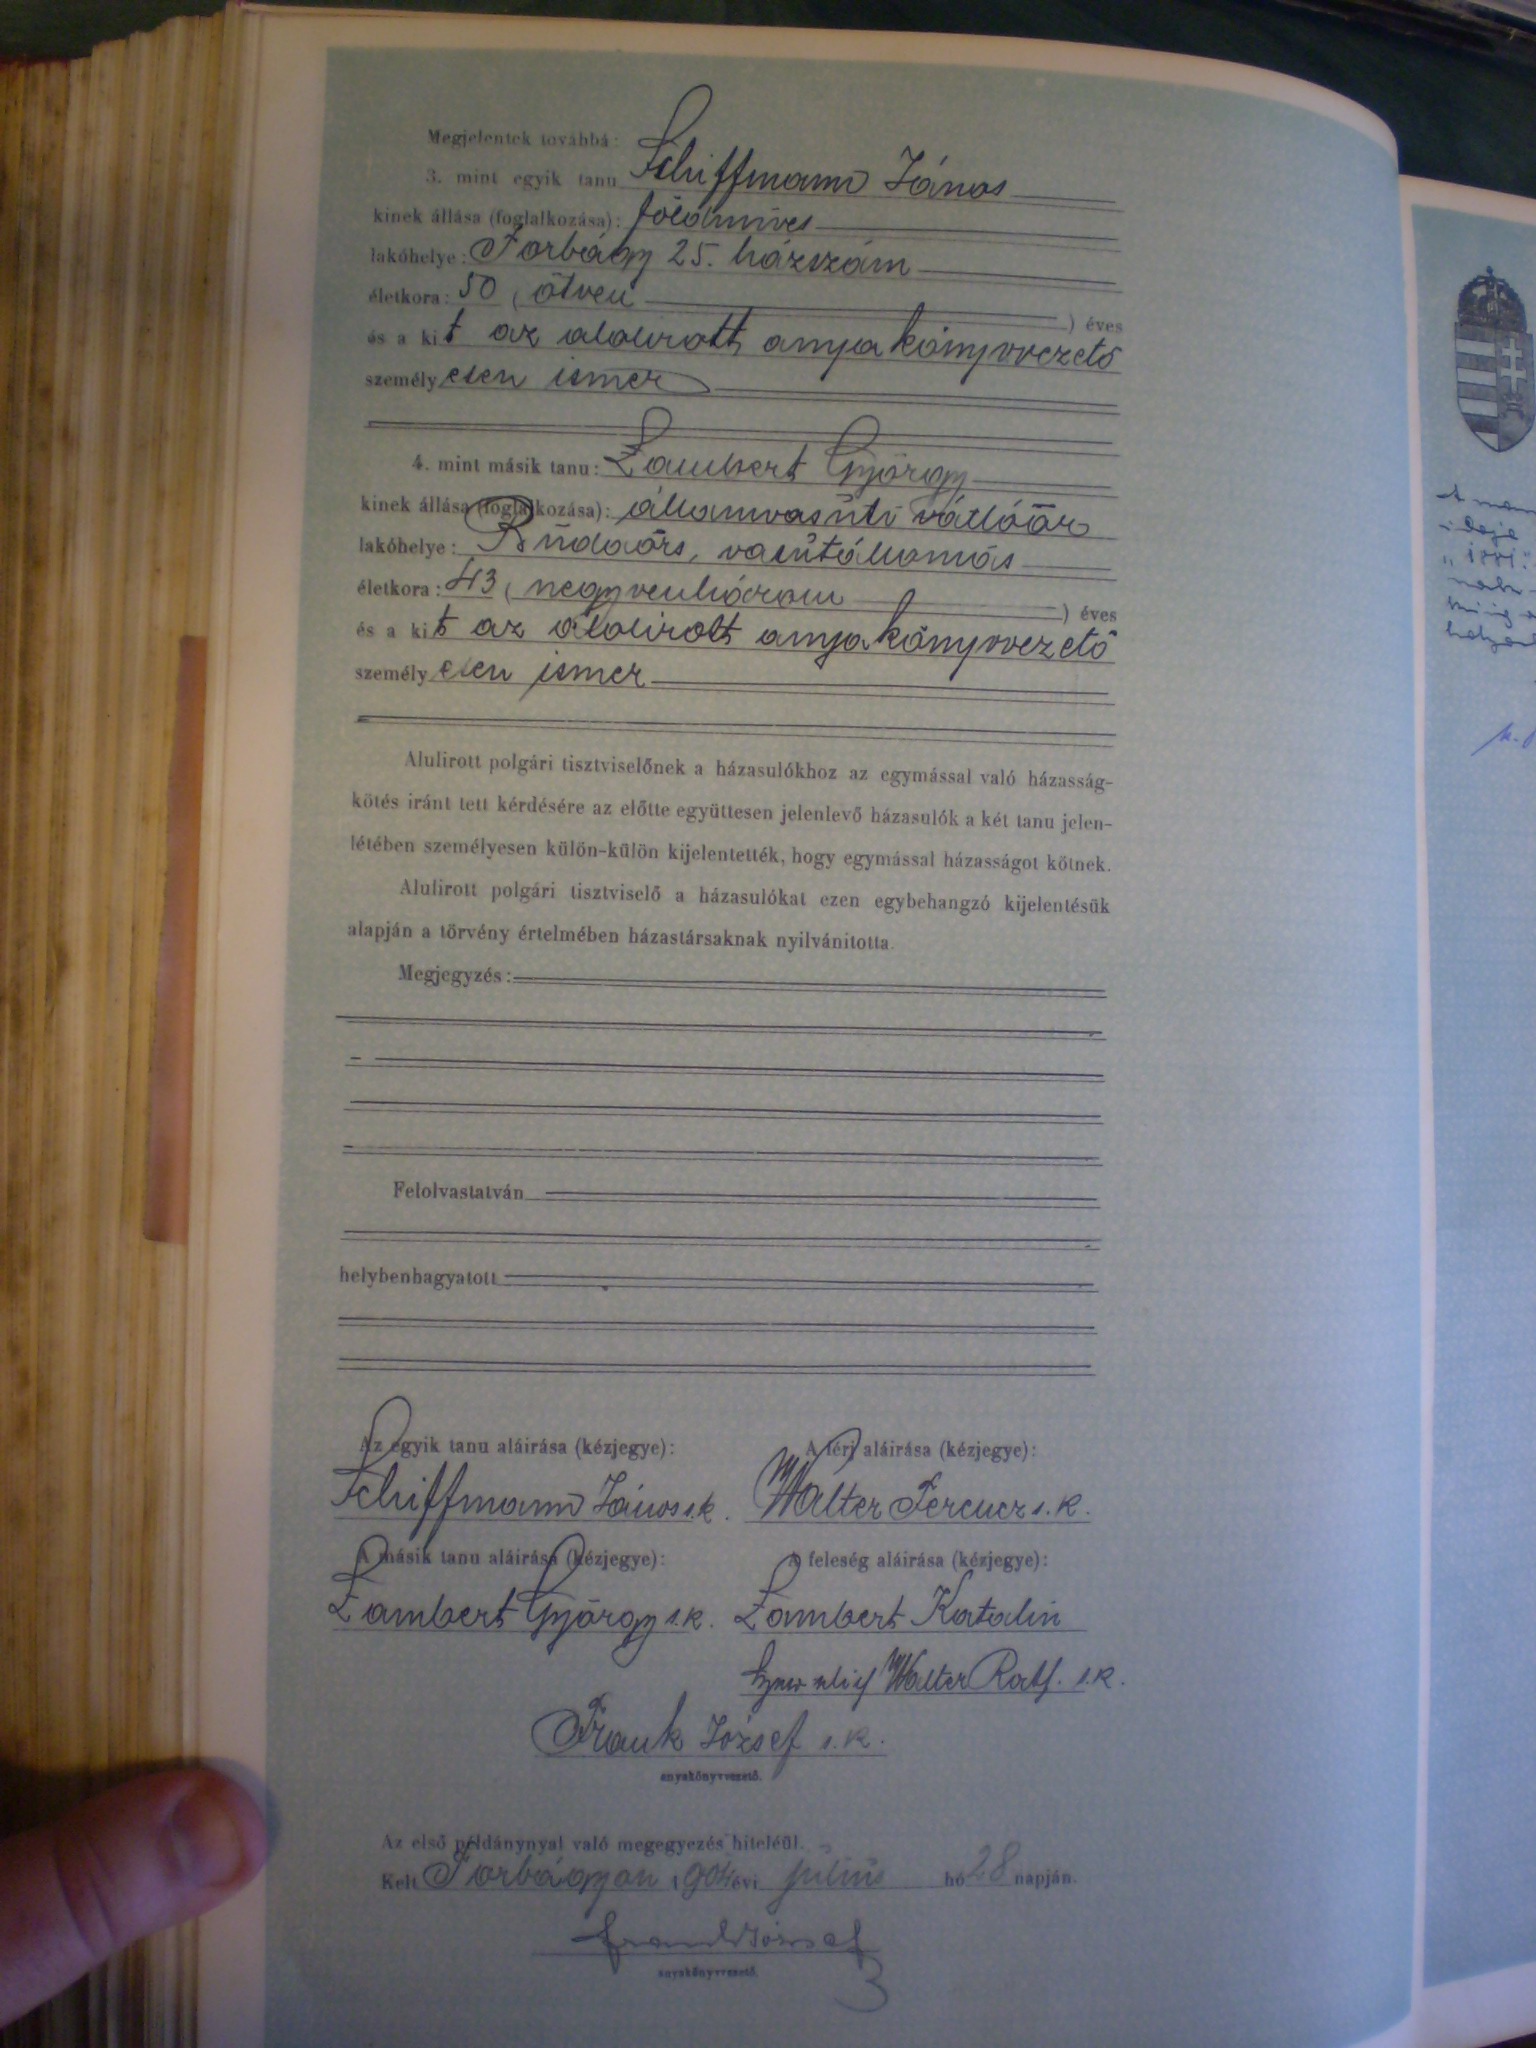 Megjelentek továbbá:
3. mint egyik tanu Schiffmann János
kinek állása (foglalkozása): földmíves
lakóhelye: Torbágy 25. házszám
életkora: 50 (ötven) éves
és a kit az alulirott anyakönyvvezető
személyesen ismer
4. mint másik tanu: Lambert György
kinek állása (foglalkozása): államvasúti váltóőr
lakóhelye: Budaörs, vasútállomás
életkora: 43 (negyvenhárom) éves
és a kit az alulirott anyakönyvvezető
személyesen ismer
Alulirott polgári tisztviselőnek a házasulókhoz az egymással való házasság-
kötés iránt tett kérdésére az előtte együttesen jelenlevő házasulók a két tanu jelen-
létében személyesen külön-külön kijelentették, hogy egymással házasságot kötnek.
Alulirott polgári tisztviselő a házasulókat ezen egybehangzó kijelentésük
alapján a törvény értelmében házastársaknak nyilvánitotta.
Megjegyzés:
Felolvastatván
helybenhagyatott
Az egyik tanu aláirása (kézjegye): A férj aláirása (kézjegye):
Schiffmann János s.k. Walter Ferencz s.k.
A másik tanu aláirása (kézjegye): A feleség aláirása (kézjegye):
Lambert György s.k. Lambert Katalin
Walter Kath. s.k.
Frank József s.k.
anyakönyvvezető.
Az első példánynyal való megegyezés hiteléül.
Kelt Torbágyon 1904 évi július hó 28 napján.
Frank József
anyakönyvvezető.
3